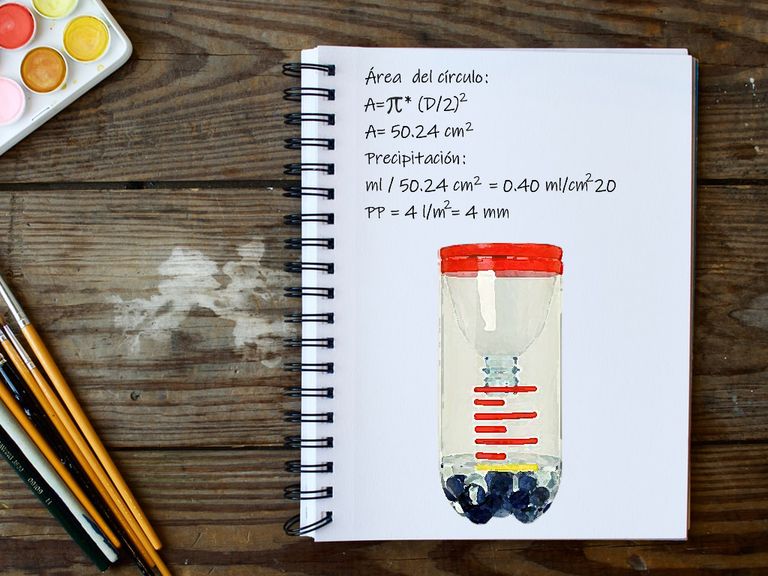 Área del círculo:
A=π* (D/2)²
A= 50.24 cm²
Precipitación:
ml / 50.24 cm² = 0.40 ml/cm²20
PP = 4 l/m²= 4 mm